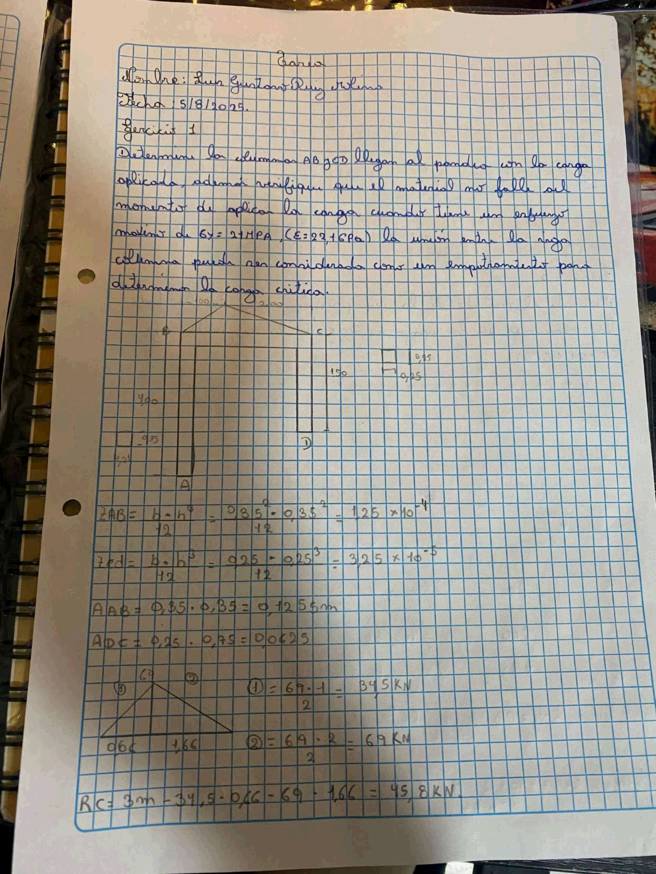 Tarea
Nombre: Luis Gustavo Ruiz Molina
Fecha: 5/8/2025.
Ejercicio 1
Determine la columna AB y CD llegan al pandeo con la carga
aplicada, además verifique que el material no falle al
momento de aplicar la carga cuando tiene un esfuerzo
maximo de Gy= 21MPA, (E=22,1GPa) la unión entre la viga
columna puede ser considerada como un empotramiento para
determinar la carga critica.
1,00 2,00
B C
0,25
150 0,25
4,00
D
A
IAB= b·h³/12 = 0,35·0,35²/12 = 1,25 ×10⁻⁴
Icd= b·h³/12 = 0,25·0,25³/12 = 3,25 ×10⁻⁵
AAB= 0,35·0,35= 0,1255m
ADC= 0,25·0,75= 0,0625
69
① ② ① = 69·1/2 = 34,5 KN
0,66 1,66 ② = 69·2/2 = 69 KN
RC= 3m -34,5·0,66 -69·1,66 = 45,8 KN.